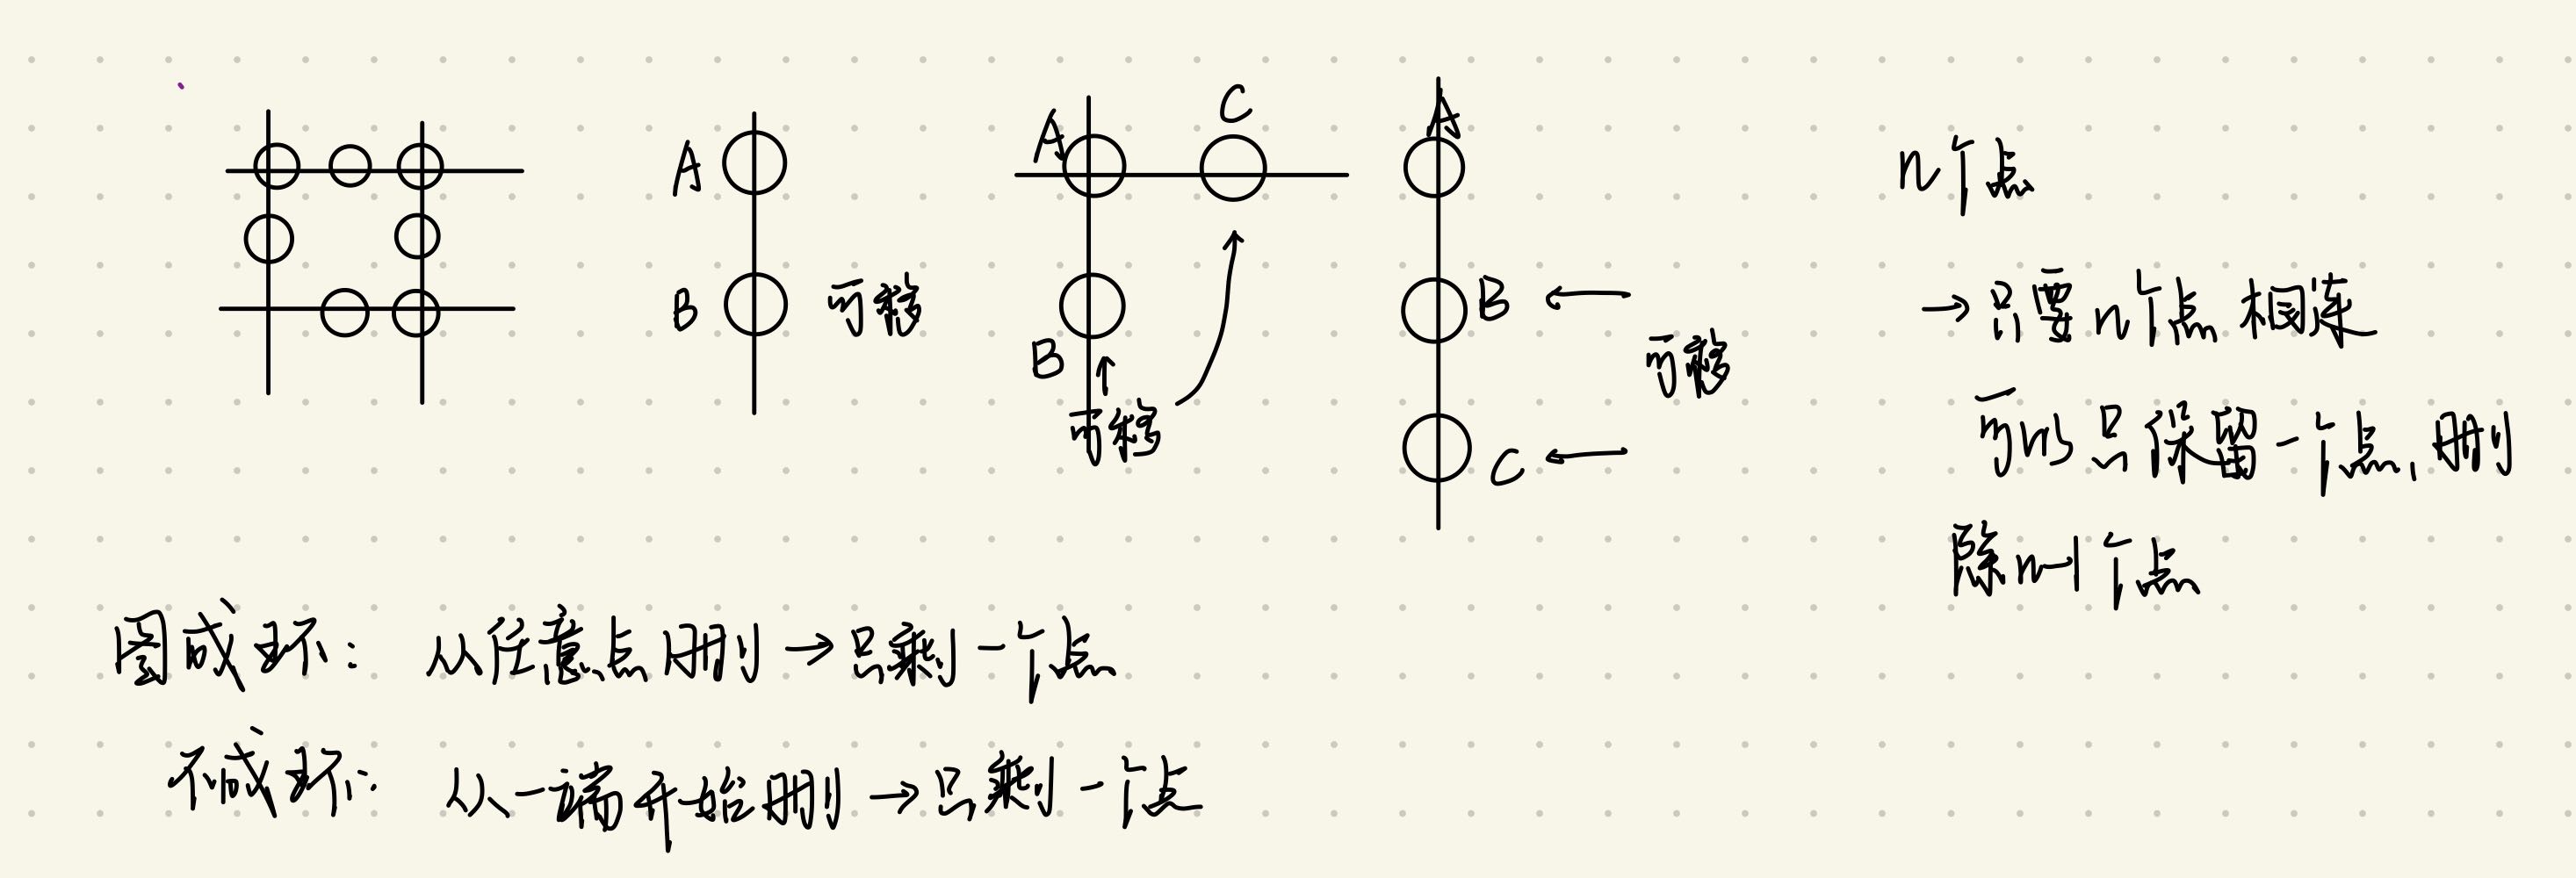 A
B
可移
A
C
B
可移
A
B
C
可移
n个点
→只要n个点相连
可以只保留一个点,删
除n-1个点
图成环: 从任意点删→只剩一个点
不成环: 从一端开始删→只剩一个点